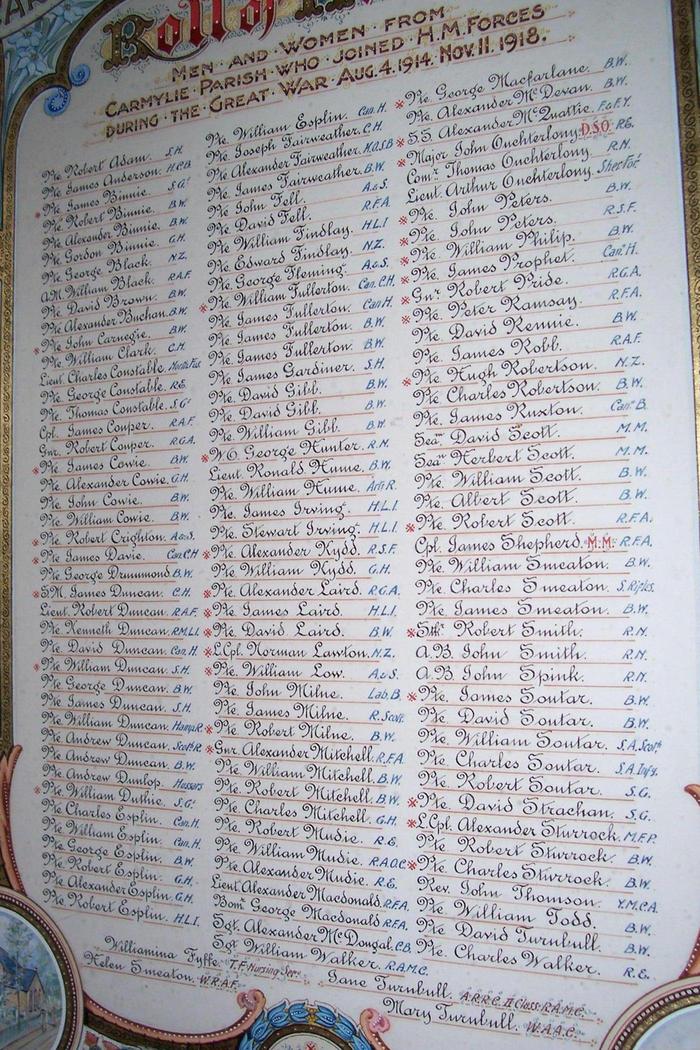 Roll of
MEN · AND · WOMEN · FROM
CARMYLIE · PARISH · WHO · JOINED · H.M. FORCES
DURING · THE · GREAT · WAR · AUG. 4. 1914. NOV. 11. 1918.
Pte Robert Adam. S.H.
Pte James Anderson. H.C.B.
Pte James Binnie. S.G.
※Pte Robert Binnie. B.W.
Pte Alexander Binnie. B.W.
Pte Gordon Binnie. G.H.
Pte George Black. N.Z.
A.M. William Black. R.A.F.
Pte David Brown. B.W.
Pte Alexander Buchan. B.W.
Pte John Carnegie. B.W.
※Pte William Clark. C.H.
Lieut. Charles Constable.
Pte George Constable. R.E.
Pte Thomas Constable. S.G.
Cpl. James Couper. R.A.F.
Gnr. Robert Couper. R.G.A.
※Pte James Cowie. B.W.
Pte Alexander Cowie. G.H.
Pte John Cowie. B.W.
Pte William Cowie. B.W.
※Pte Robert Crighton. A&S.
※Pte James Davie. Can. C.H
Pte George Drummond B.W.
※S.M. James Duncan. C.H.
Lieut. Robert Duncan. R.A.F.
Pte Kenneth Duncan. R.M.L.I.
Pte David Duncan. Can. H.
※Pte William Duncan. S.H.
Pte George Duncan. B.W.
Pte James Duncan. S.H.
Pte William Duncan. Hamp R.
Pte Andrew Duncan. Scot. H.
Pte Andrew Duncan. B.W.
Pte Andrew Dunlop. Hussars
※Pte William Duthie. S.G.
Pte Charles Esplin. Can. H.
Pte William Esplin. Can. H.
Pte George Esplin. B.W.
Pte Robert Esplin. G.H.
Pte Alexander Esplin. G.H.
Pte Robert Esplin. H.L.I.
Pte William Esplin. Can. H.
Pte Joseph Fairweather. C.H.
Pte Alexander Fairweather. K.O.S.B
Pte James Fairweather. B.W.
Pte John Fell. A&S.
Pte David Fell. R.F.A.
Pte William Findlay. H.L.I
Pte Edward Findlay. N.Z.
Pte George Fleming. A&S.
※Pte William Fullerton. Can. C.H.
Pte James Fullerton. Can H.
Pte James Fullerton. B.W.
Pte James Fullerton. B.W.
Pte James Gardiner. S.H.
Pte David Gibb. B.W.
Pte David Gibb. B.W.
Pte William Gibb. B.W.
※W.O. George Hunter. R.N.
Lieut. Ronald Hume. B.W.
Pte William Hume. Arti R.
Pte James Irving. H.L.I.
Pte Stewart Irving. H.L.I.
※Pte Alexander Kydd. R.S.F.
Pte William Kydd. G.H.
※Pte Alexander Laird. R.G.A.
※Pte James Laird. H.L.I.
※Pte David Laird. B.W.
※L.Cpl. Norman Lawton. N.Z.
※Pte William Low. A&S.
Pte John Milne. Lab. B.
Pte James Milne. R. Scots
※Pte Robert Milne. B.W.
※Gnr. Alexander Mitchell. R.F.A.
Pte William Mitchell. B.W.
Pte Robert Mitchell. B.W.
Pte Charles Mitchell. G.H.
Pte Robert Mudie. R.E.
Pte William Mudie. R.A.O.C.
Pte Alexander Mudie. R.E.
Lieut Alexander Macdonald. R.F.A.
Bomr George Macdonald R.F.A.
Sgt. Alexander McDougal. C.B.
Sgt William Walker. R.A.M.C.
※Pte George Macfarlane. B.W.
Pte Alexander McDevan. B.W.
※S.S. Alexander McQuattie. F&F.Y.
※Major John Ouchterlony D.S.O. R.E.
Comr Thomas Ouchterlony. R.N.
Lieut. Arthur Ouchterlony.
※Pte John Peters. B.W.
※Pte John Peters. R.S.F.
※Pte William Philip. B.W.
※Pte James Prophet. Can. H.
※Gnr Robert Pride. R.G.A.
※Pte Peter Ramsay. R.F.A.
Pte David Rennie. B.W.
Pte James Robb. R.A.F.
※Pte Hugh Robertson. N.Z.
Pte Charles Robertson. B.W.
Pte James Ruxton. Can. B.
Sean David Scott. M.M.
Sean Herbert Scott. M.M.
Pte William Scott. B.W.
Pte Albert Scott. B.W.
※Pte Robert Scott. R.F.A.
Cpl. James Shepherd. M.M. R.F.A.
Pte William Smeaton. B.W.
Pte Charles Smeaton. S. Rifles.
Pte James Smeaton. B.W.
※Robert Smith. R.N.
A.B. John Smith. R.N.
A.B. John Spink. R.N.
※Pte James Soutar. B.W.
Pte David Soutar. B.W.
Pte William Soutar. S.A. Scott
Pte Charles Soutar. S.A. Infy.
Pte Robert Soutar. S.G.
※Pte David Strachan. S.G.
※L.Cpl. Alexander Sturrock. M.F.P.
Pte Robert Sturrock. B.W.
※Pte Charles Sturrock. B.W.
Rev. John Thomson. Y.M.C.A.
Pte William Todd. B.W.
Pte David Turnbull. B.W.
Pte Charles Walker. R.E.
Williamina Fyffe. T.F. Nursing Ser.
Helen Smeaton. W.R.A.F.
Jane Turnbull. A.R.R.C. II Class R.A.M.C.
Mary Turnbull. W.A.A.C.